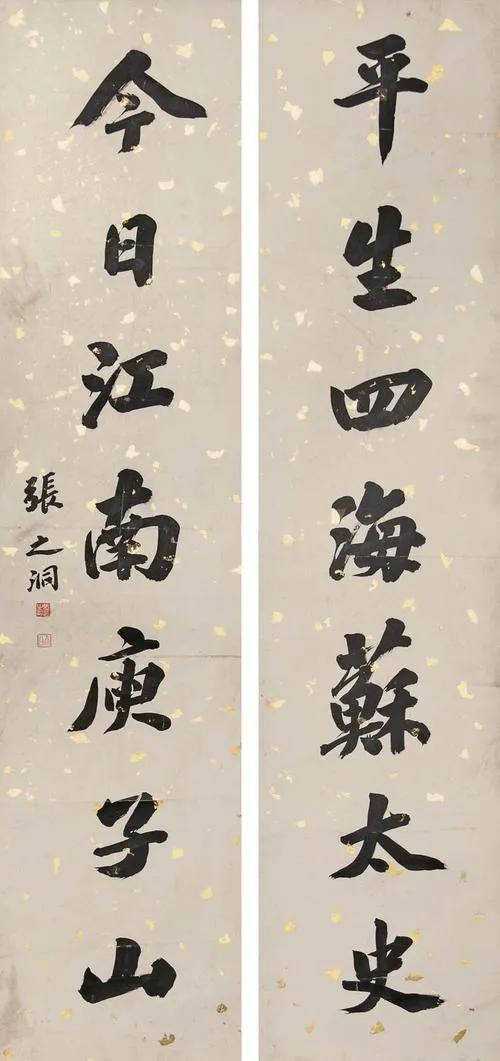 平生四海蘇太史
今日江南庾子山
張之洞